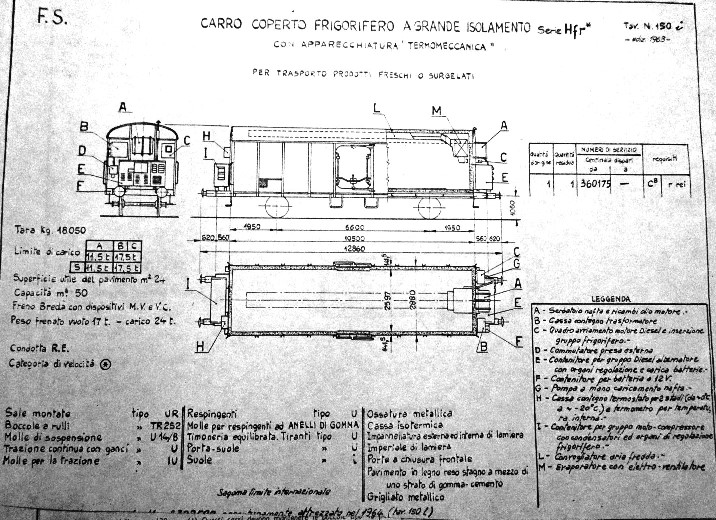 F.S.
CARRO COPERTO FRIGORIFERO A GRANDE ISOLAMENTO Serie Hfr*
Tav. N. 150 i
- ediz. 1963 -
CON APPARECCHIATURA "TERMOMECCANICA"
PER TRASPORTO PRODOTTI FRESCHI O SURGELATI
A
B
C
D
E
F
H
I
L
M
A
C
E
quantità origine
quantità residuo
NUMERI DI SERVIZIO
Centinaia dispari
da
a
requisiti
1
1
360175
—
C B
r rei
1060
1950
6600
1950
620
560
10500
560
620
12860
Tara Kg. 18050
Limite di carico
A
B|C
11,5 t
17,5 t
S
11,5 t
17,5 t
Superficie utile del pavimento m² 24
Capacità m³ 50
Freno Breda con dispositivi M.V. e V.C.
Peso frenato vuoto 17 t. - carico 24 t.
Condotta R.E.
Categoria di velocità
I
H
2597
2880
C
G
A
E
F
B
LEGGENDA
A - Serbatoio nafta e ricambi olio motore.-
B - Cassa contegno trasformatore
C - Quadro avviamento motore Diesel e inserzione
gruppo frigorifero.-
D - Commutatore presa esterna
E - Contenitore per gruppo Diesel alternatore
con organi regolazione e carica batterie.-
F - Contenitore per batteria a 12 V.
G - Pompa a mano caricamento nafta.-
H - Cassa contegno termostato per 2 stadi
a ~ -20°C) e termometro per temperatu
ra interna.-
I - Contenitore per gruppo moto-compressore
con condensatori ed organi di regolazione
frigorifero.-
L - Convogliatore aria fredda.-
M - Evaporatore con elettro-ventilatore
Sale montate tipo UR
Boccole e rulli " TR252
Molle di sospensione " U 14/8
Trazione continua con ganci " U
Molle per la trazione " IU
Respingenti tipo U
Molle per respingenti ad ANELLI DI GOMMA
Timoneria equilibrata. Tiranti tipo U
Porta-suole " U
Suole " i
Ossatura metallica
Cassa isotermica
Impannellatura esterna ed interna di lamiera
Imperiale di lamiera
Porte a chiusura frontale
Pavimento in legno reso stagno a mezzo di
uno strato di gomma-cemento
Grigliato metallico
Sagoma limite internazionale
attrezzato nel 1964 (tav. 150 l)